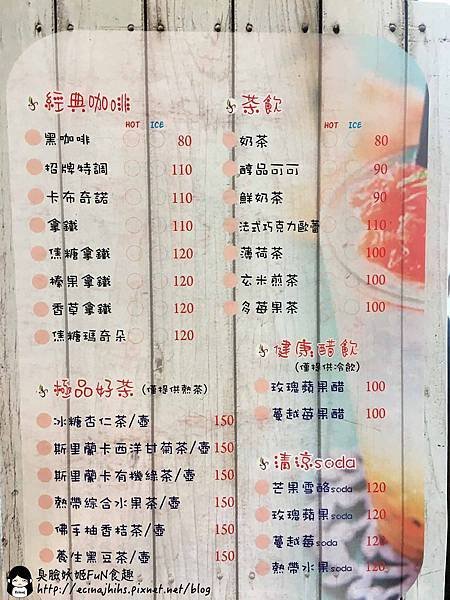 經典咖啡
HOT ICE
黑咖啡 80
招牌特調 110
卡布奇諾 110
拿鐵 110
焦糖拿鐵 120
榛果拿鐵 120
香草拿鐵 120
焦糖瑪奇朵 120
極品好茶 (僅提供熱茶)
冰糖杏仁茶/壺 150
斯里蘭卡西洋甘菊茶/壺 150
斯里蘭卡有機綠茶/壺 150
熱帶綜合水果茶/壺 150
佛手柚香桔茶/壺 150
養生黑豆茶/壺 150
茶飲
HOT ICE
奶茶 80
醇品可可 90
鮮奶茶 90
法式巧克力歐蕾 110
薄荷茶 100
玄米煎茶 100
多莓果茶 100
健康醋飲
(僅提供冷飲)
玫瑰蘋果醋 100
蔓越莓果醋 100
清涼soda
芒果雪酪soda 120
玫瑰蘋果soda 120
蔓越莓soda 120
熱帶水果soda 120
臭臉妖姬FuN食趣
http://ecinajhihs.pixnet.net/blog